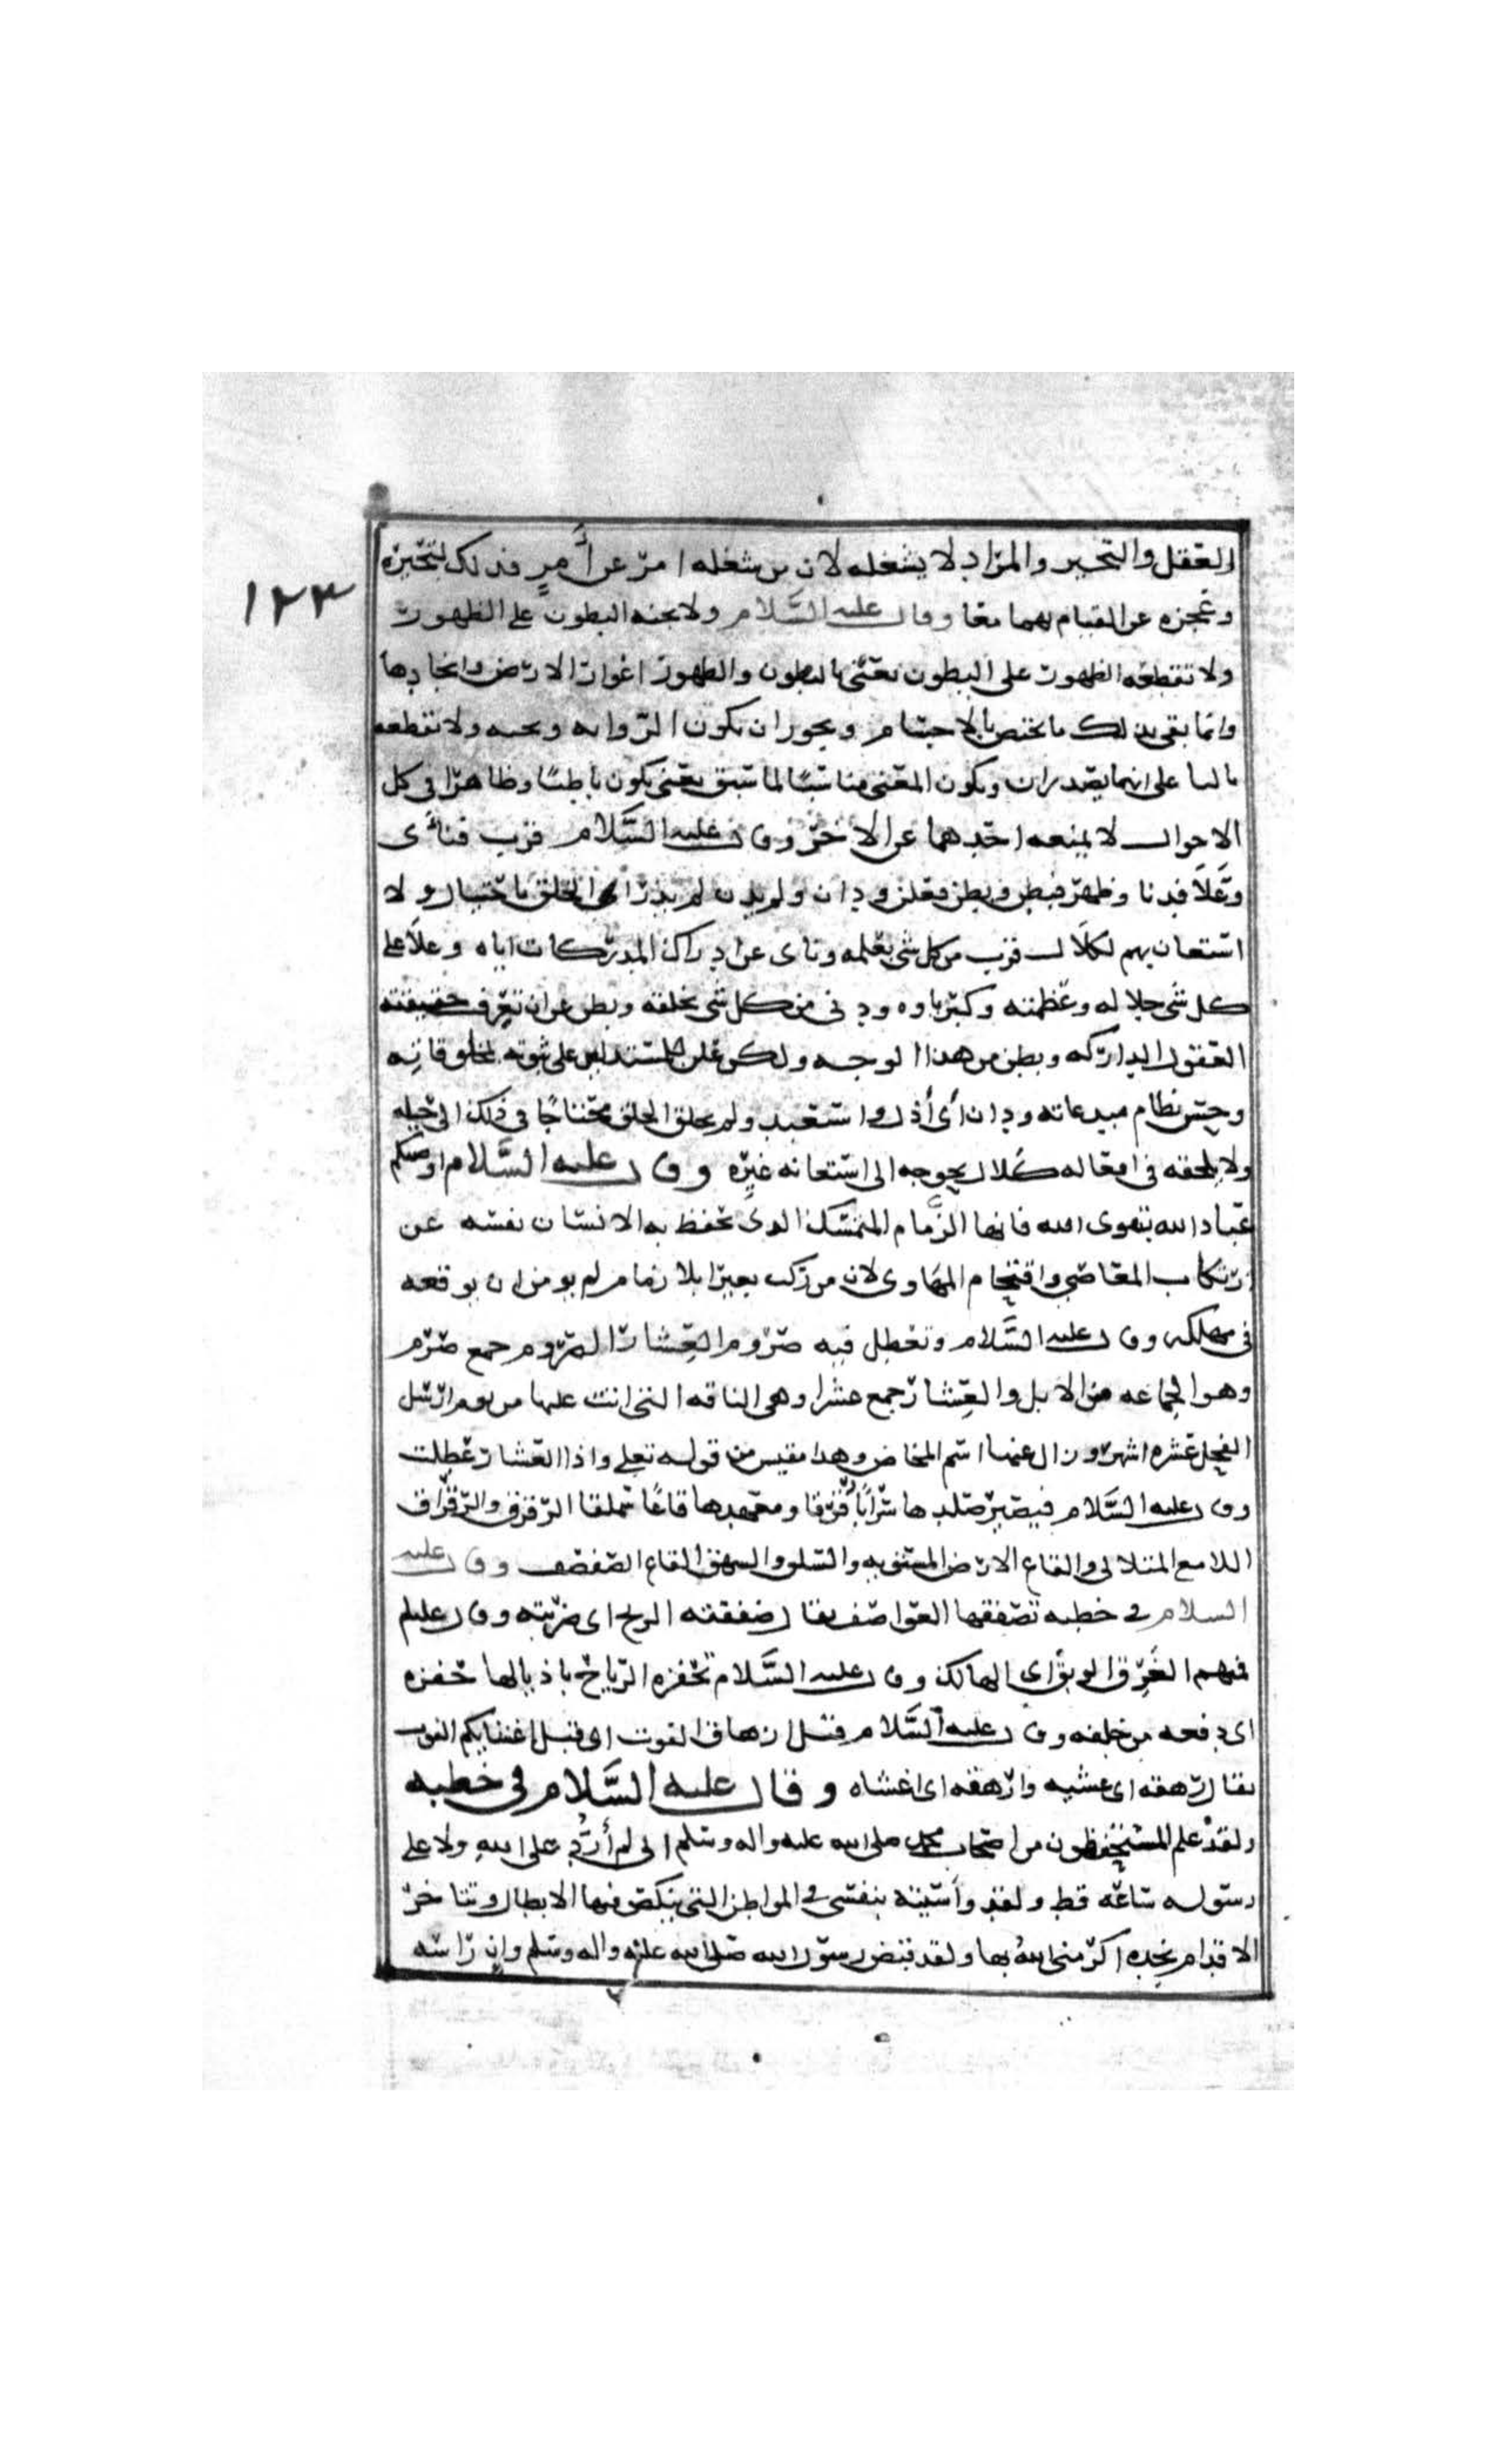 العقل والتحير والمراد لا يشغله لان من شغله امر عن أمرٍ فذلك لتحيره
١٢٣
وعجزه عن القيام بهما معا وقال عليه السَّلام ولا يجنه البطون على الظهور
ولا تقطعه الظهور على البطون يعني بالبطون والظهور اغوار الارض وانجادها
وانما بقى بذلك ما يختص بالاجسام ويجوز ان يكون الروايه ويجنه ولا تقطعه
بالیا على انهما يصدران ويكون المعنى مناسبًا لما سبق يعني يكون باطنًا وظاهرًا في كل
الاحوال لا يمنعه احدهما عن الاخر وقال عليه السَّلام قرب فنأى
وعَلَا فدنا وظهر فبطن وبطن فعلن ودان ولم يدن لم يذرأ الخلق باحتيال ولا
استعان بهم لكلال قرب من كل شى بعلمه ونای عن ادراك المدركات اياه وعلا على
كل شى بجلاله وعظمته وكبرياوه ودنى من كل شى بخلقه وبطن عن ان تعرف حقيقته
العقول الداركه وبطن من هذا الوجه ولكن علن للمستدلين على ثبوته بمخلوقاته
وحسن نظام مبدعاته ودان أى أذل واستعبد ولم يخلق الخلق محتاجًا في ذلك الى حيله
ولا يلحقه في افعاله كلال يحوجه الى استعانه غيره وقال عليه السَّلام اوصيكم
عباد الله بتقوى الله فانها الزمام المتمسك الذى يحفظ به الانسان نفسه عن
ارتكاب المعاصي واقتحام المهاوى لان من ركب بعيرًا بلا زمام لم يومن ان يوقعه
في مهلكه وقال عليه السَّلام وتعطل فيه صروم العِشار الصروم جمع صرم
وهو الجماعه من الابل والعِشار جمع عشرا وهي الناقه التي اتت عليها من يوم ارسل
الفحل عشره اشهر وزال عنها اسم المخاض وهذا مقيس من قوله تعلى واذا العشار عُطِلت
وقال عليه السلام فيصير صلدها سرابًا رقرقا ومعهدها قاعًا سملقا الرقرق والرقراق
اللامع المتلالى والقاع الارض المستويه والسلق والسملق القاع الصفصف وقال عليه
السلام في خطبه تصفقها العواصف يقال صفقته الريح اى ضربته وقال عليلم
فمنهم الغَرِق الوبق اى الهالك وقال عليه السَّلام تحفزه الرياح باذيالها حفزه
اى دفعه من خلفه وقال عليه السَّلام قبل ازهاق الفوت اى قبل اغشايكم الفوت
يقال رهقه اى غشيه وارهقه اى اغشاه وقال عليه السَّلام في خطبه
ولقد علم المستحفظون من اصحاب محمد صلى الله عليه واله وسلم انى لم أرُدّ على اللهِ ولا على
رسوله ساعه قط ولقد واسيته بنفسى في المواطن التي ينكص فيها الابطال وتتاخر
الاقدام نجده اكرمنى اللهُ بها ولقد قبض رسول الله صلى الله عليه واله وسلم وإن راسه